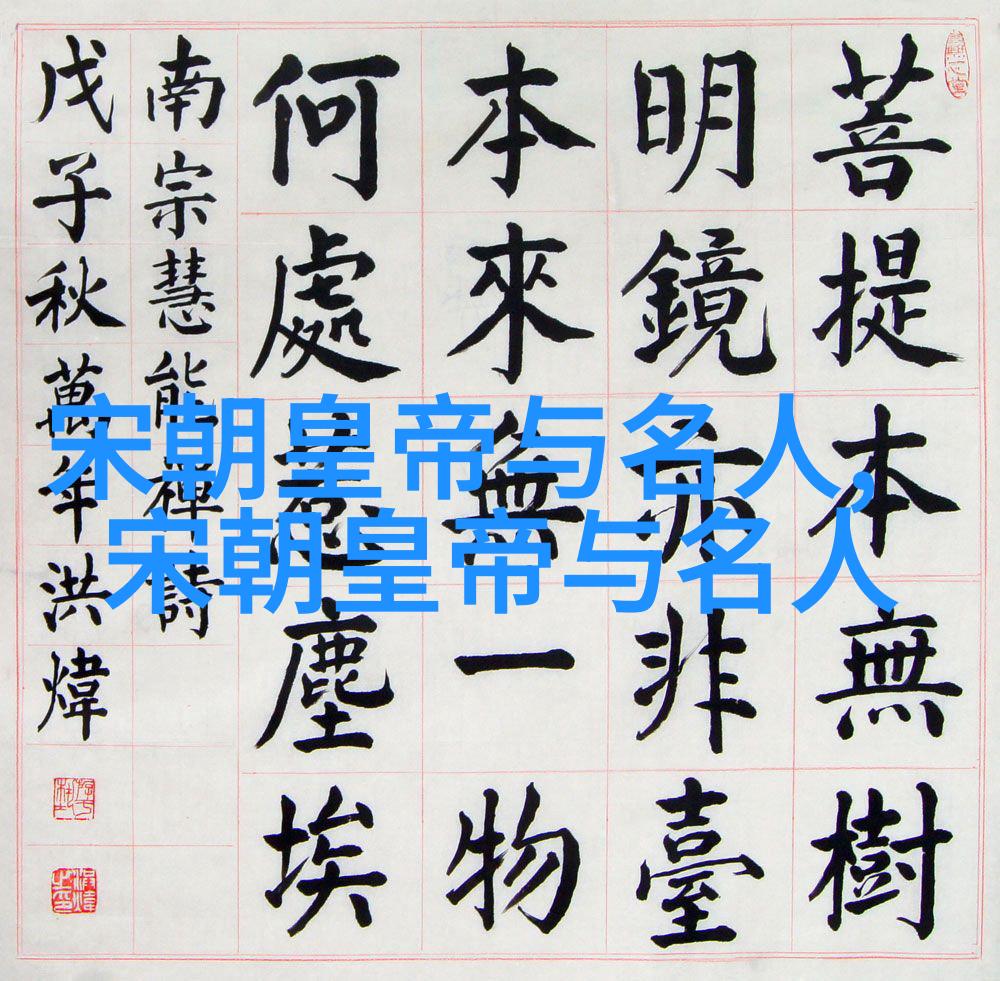 菩提本無樹
明鏡亦非臺
本來無一物
何處惹塵埃
南宗慧能禪詩
戊子秋萬年洪煒
宋朝皇帝与名人,
宋朝皇帝与名人